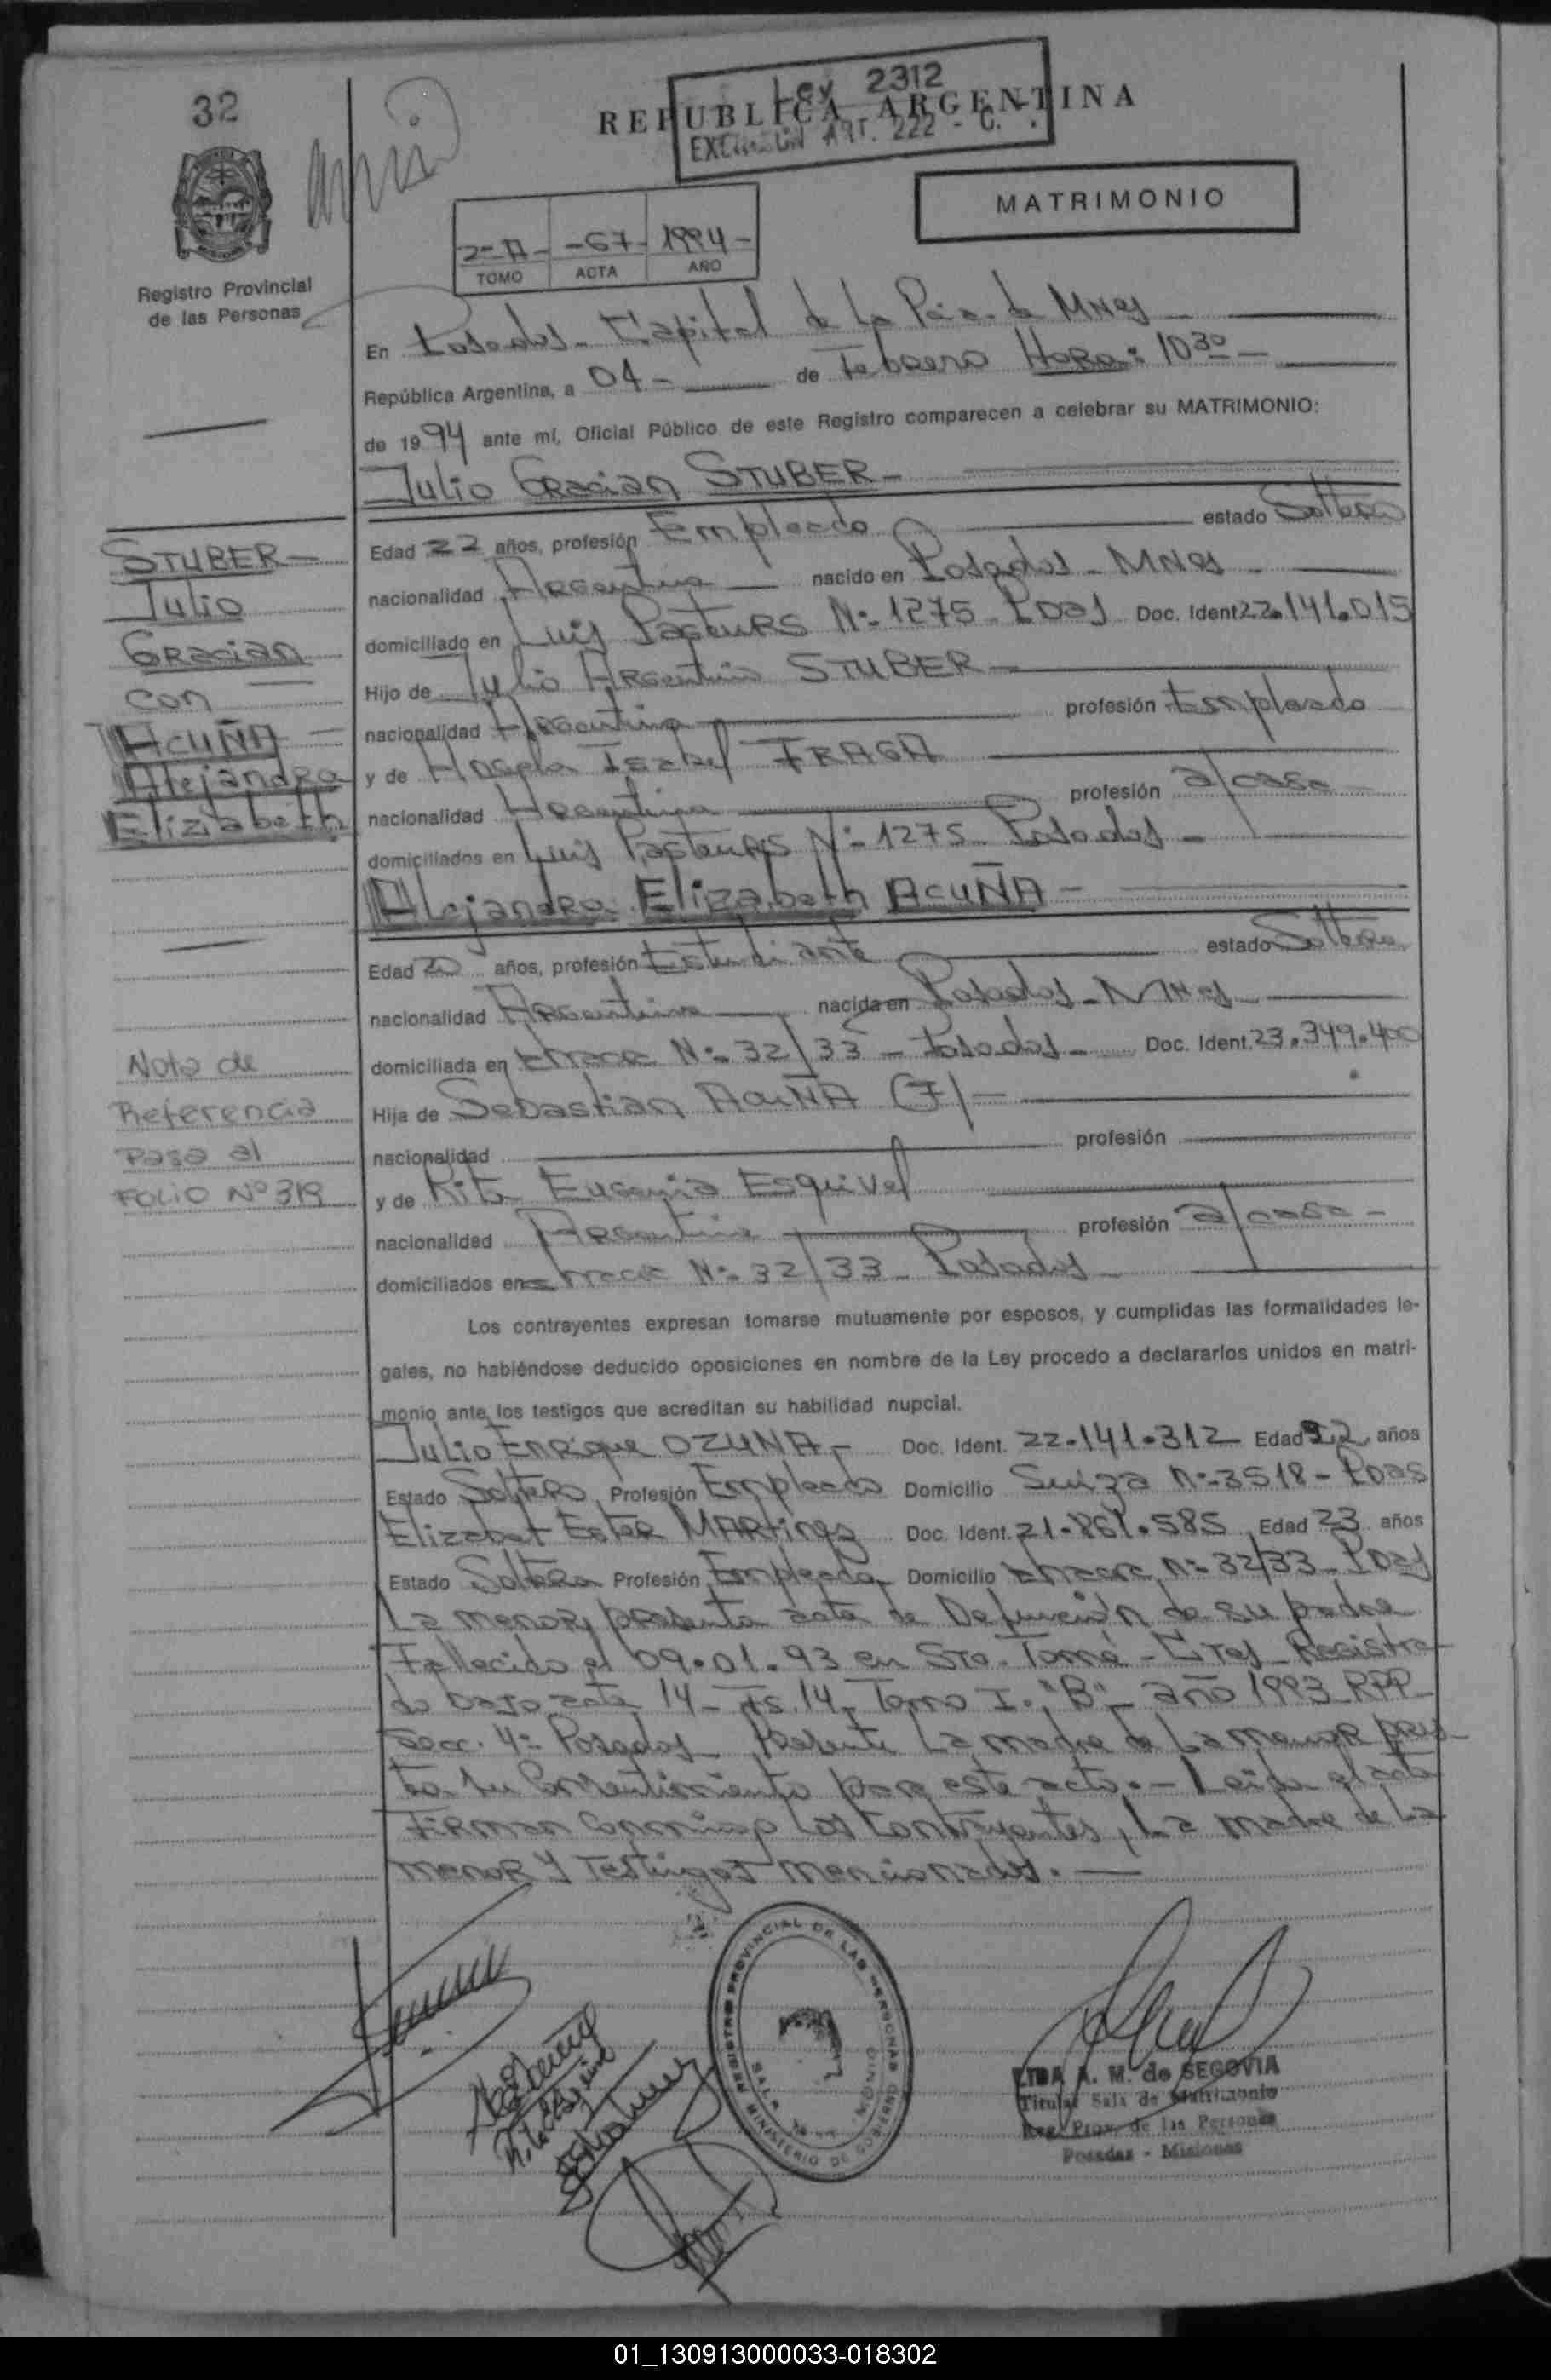 32
Ley 2312
REPUBLICA ARGENTINA
ART. 222 - C.
MATRIMONIO
2-A- -67- 1994-
TOMO ACTA AÑO
Registro Provincial
de las Personas
En Posadas- Capital de La Pcia. de MNes
República Argentina, a 04- de Febrero Hora: 10 30-
de 1994 ante mí, Oficial Público de este Registro comparecen a celebrar su MATRIMONIO:
Julio Gracian STUBER-
Edad 22 años, profesión Empleado estado Soltero
nacionalidad Argentina nacido en Posadas - MNes
domiciliado en Luis Pasteurs Nº 1275- Pdas Doc. Ident 22.141.015
Hijo de Julio Argentino STUBER-
nacionalidad Argentina profesión Empleado
y de Angela Isabel FRAGA
nacionalidad Argentina profesión a/casa-
domiciliados en Luis Pasteurs Nº 1275- Posadas-
Alejandra Elizabeth ACUÑA-
Edad 20 años, profesión Estudiante estado Soltera
nacionalidad Argentina nacida en Posadas - MNes
domiciliada en Chacra Nº 32/33 - Posadas- Doc. Ident. 23.349.400
Hija de Sebastian ACUÑA (F)-
nacionalidad profesión
y de Rita Eugenia Esquivel
nacionalidad Argentina profesión a/casa-
domiciliados en Chacra Nº 32/33- Posadas
Los contrayentes expresan tomarse mutuamente por esposos, y cumplidas las formalidades le-
gales, no habiéndose deducido oposiciones en nombre de la Ley procedo a declararlos unidos en matri-
monio ante los testigos que acreditan su habilidad nupcial.
Julio Enrique OZUNA- Doc. Ident. 22.141.312 Edad 22 años
Estado Soltero Profesión Empleado Domicilio Suiza Nº 3518- Pdas
Elizabet Ester MARtinez Doc. Ident. 21.861.585 Edad 23 años
Estado Soltera Profesión Empleada Domicilio Chacra Nº 32/33- Pdas
La menor, presenta acta de Defunción de su padre
Fallecido el 09.01.93 en Sto. Tomé - Ctes- Registra-
do bajo acta 14- Fs. 14- Tomo I. "B"- año 1993 RPP-
secc. 4ª Posadas- Presente La madre de La menor pres-
ta su Consentimiento para este acto.- Leida el acta
Firman Conmigo Los Contrayentes, La madre de La
menor y Testigos mencionados.-
STUBER-
Julio
Gracian
con
ACUÑA-
Alejandra
Elizabeth
Nota de
Referencia
Pasa al
FOLIO Nº 319
REGISTRO PROVINCIAL DE LAS PERSONAS
MINISTERIO DE GOBIERNO
A. M. de SEGOVIA
Titular Sala de Matrimonio
Reg. Prov. de las Personas
Posadas - Misiones
01_130913000033-018302